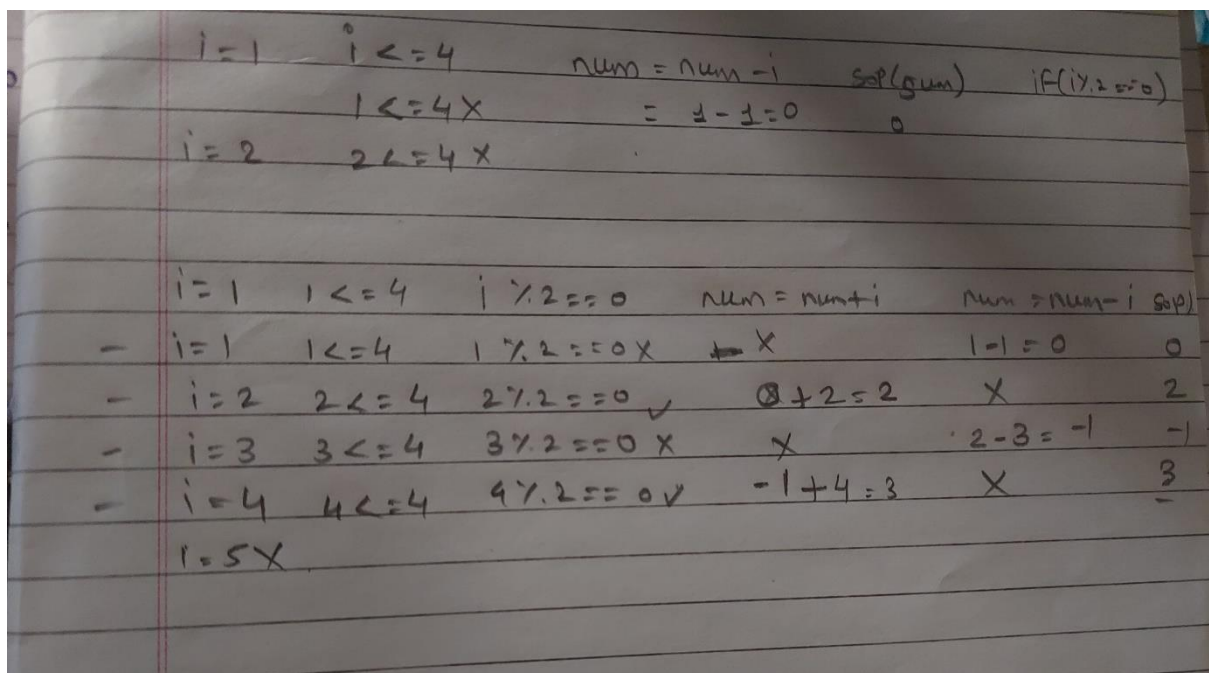 i = 1 i <= 4 num = num - i sop(num) if(i%2==0)
1 <= 4 X = 1 - 1 = 0 0
i = 2 2 <= 4 X
i = 1 1 <= 4 i % 2 == 0 num = num + i num = num - i sop)
- i = 1 1 <= 4 1 % 2 == 0 X X 1 - 1 = 0 0
- i = 2 2 <= 4 2 % 2 == 0 ✓ 0 + 2 = 2 X 2
- i = 3 3 <= 4 3 % 2 == 0 X X 2 - 3 = -1 -1
- i = 4 4 <= 4 4 % 2 == 0 ✓ -1 + 4 = 3 X 3
i = 5 X